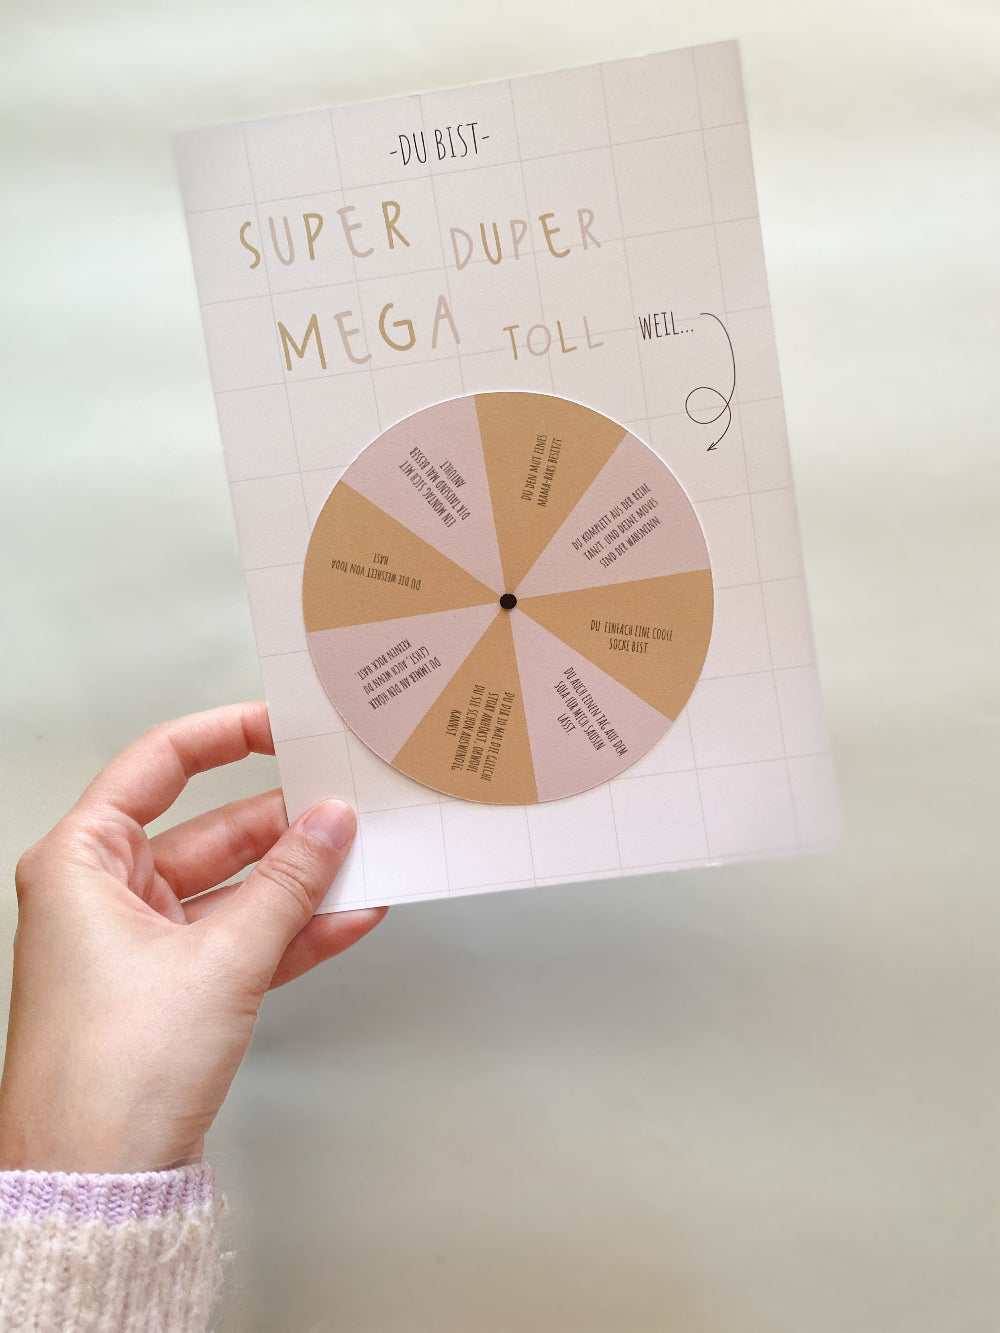 -DU BIST-
SUPER DUPER
MEGA TOLL WEIL...
DU DEN MUT EINES
MAMA-BÄRS BESITZT.
DU KOMPLETT AUS DER REIHE
TANZT UND DEINE MOVES
SIND DER WAHSNINN.
DU EINFACH EINE COOLE
SOCKE BIST.
DU AUCH EINEN TAG AUF DEM
SOFA FÜR MICH SAUSEN
LÄSST.
DU DIR 10 MAL DIE GLEICHE
STORY ANHÖRST, OBWOHL
DU SIE SCHON AUSWENDIG
KANNST
DU IMMER AN DEN HÖRER
GEHST, AUCH WENN DU
KEINEN BOCK HAST
DU DIE WEISHEIT VON YODA
HAST.
EIN MONTAG SICH MIT
DIR TAUSEND MAL BESSER
ANFÜHLT.